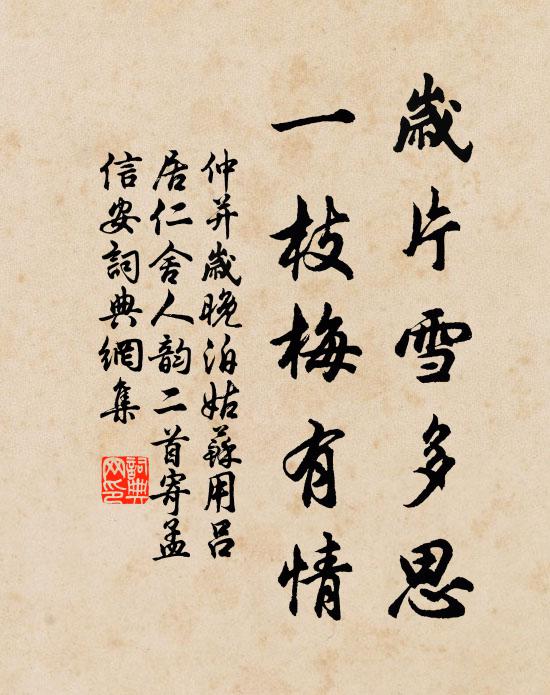 歲片雪多思
一枝梅有情
仲并歲晚泊姑蘇用呂
居仁舍人韵二首寄孟
信安詞典網集
詞典
网印